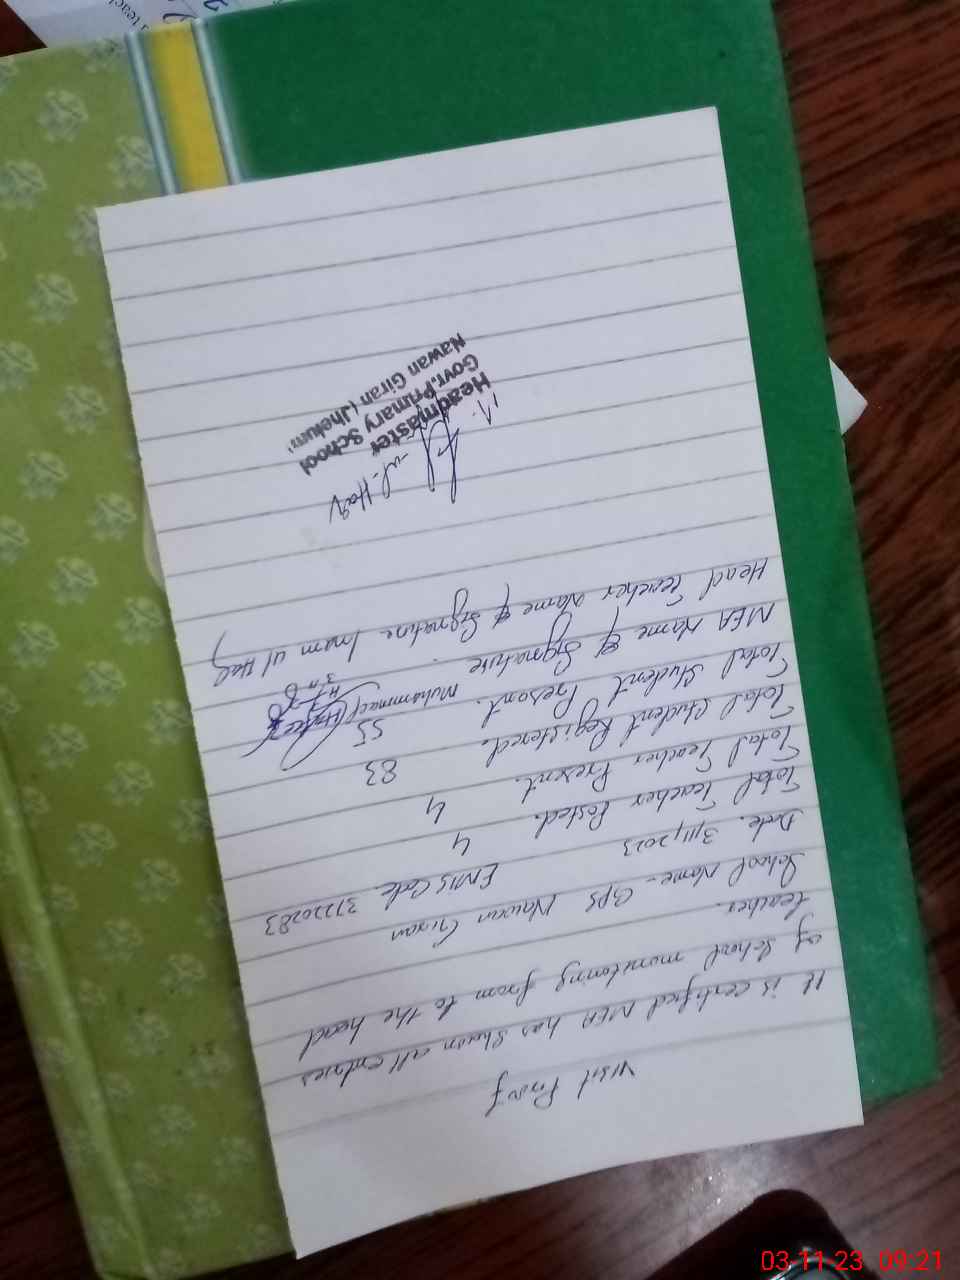 Visit Proof
It is certified MEA has shown all entries
of School monitoring from to the head
teacher.
School Name - GPS Nawan Giran
Date. 3/11/2023 EMIS Code 37220283
Total Teacher Posted. 4
Total Teacher Present. 4
Total Student Registered. 83
Total Student Present. 55
MEA Name & Signature Muhammad
Head Teacher Name & Signature Inam ul Haq
ul-Haq
Headmaster
Govt.Primary School
Nawan Giran (Jhelum)
03-11-23 09:21